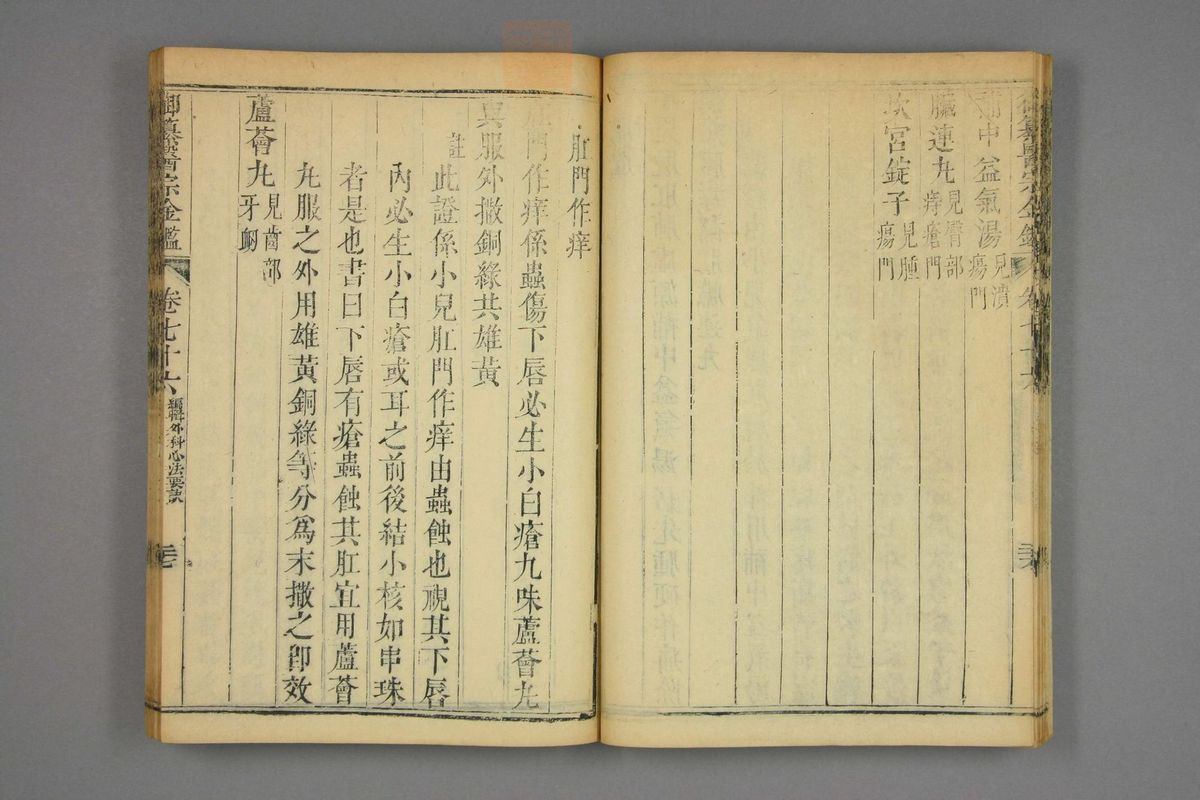 御纂醫宗金鑑 卷七十六
補中益氣湯 見潰瘍門
臟連丸 見臀部痔瘡門
坎宮錠子 見腫瘍門
肛門作痒
肛門作痒係蟲傷下唇必生小白瘡九味蘆薈丸
興服外撒銅綠共雄黃
註 此證係小兒肛門作痒由蟲蝕也視其下唇
內必生小白瘡或耳之前後結小核如串珠
者是也書曰下唇有瘡蟲蝕其肛宜用蘆薈
丸服之外用雄黃銅綠等分為末撒之即效
蘆薈丸 見齒部牙衄
御纂醫宗金鑑 卷七十六 編輯外科心法要訣